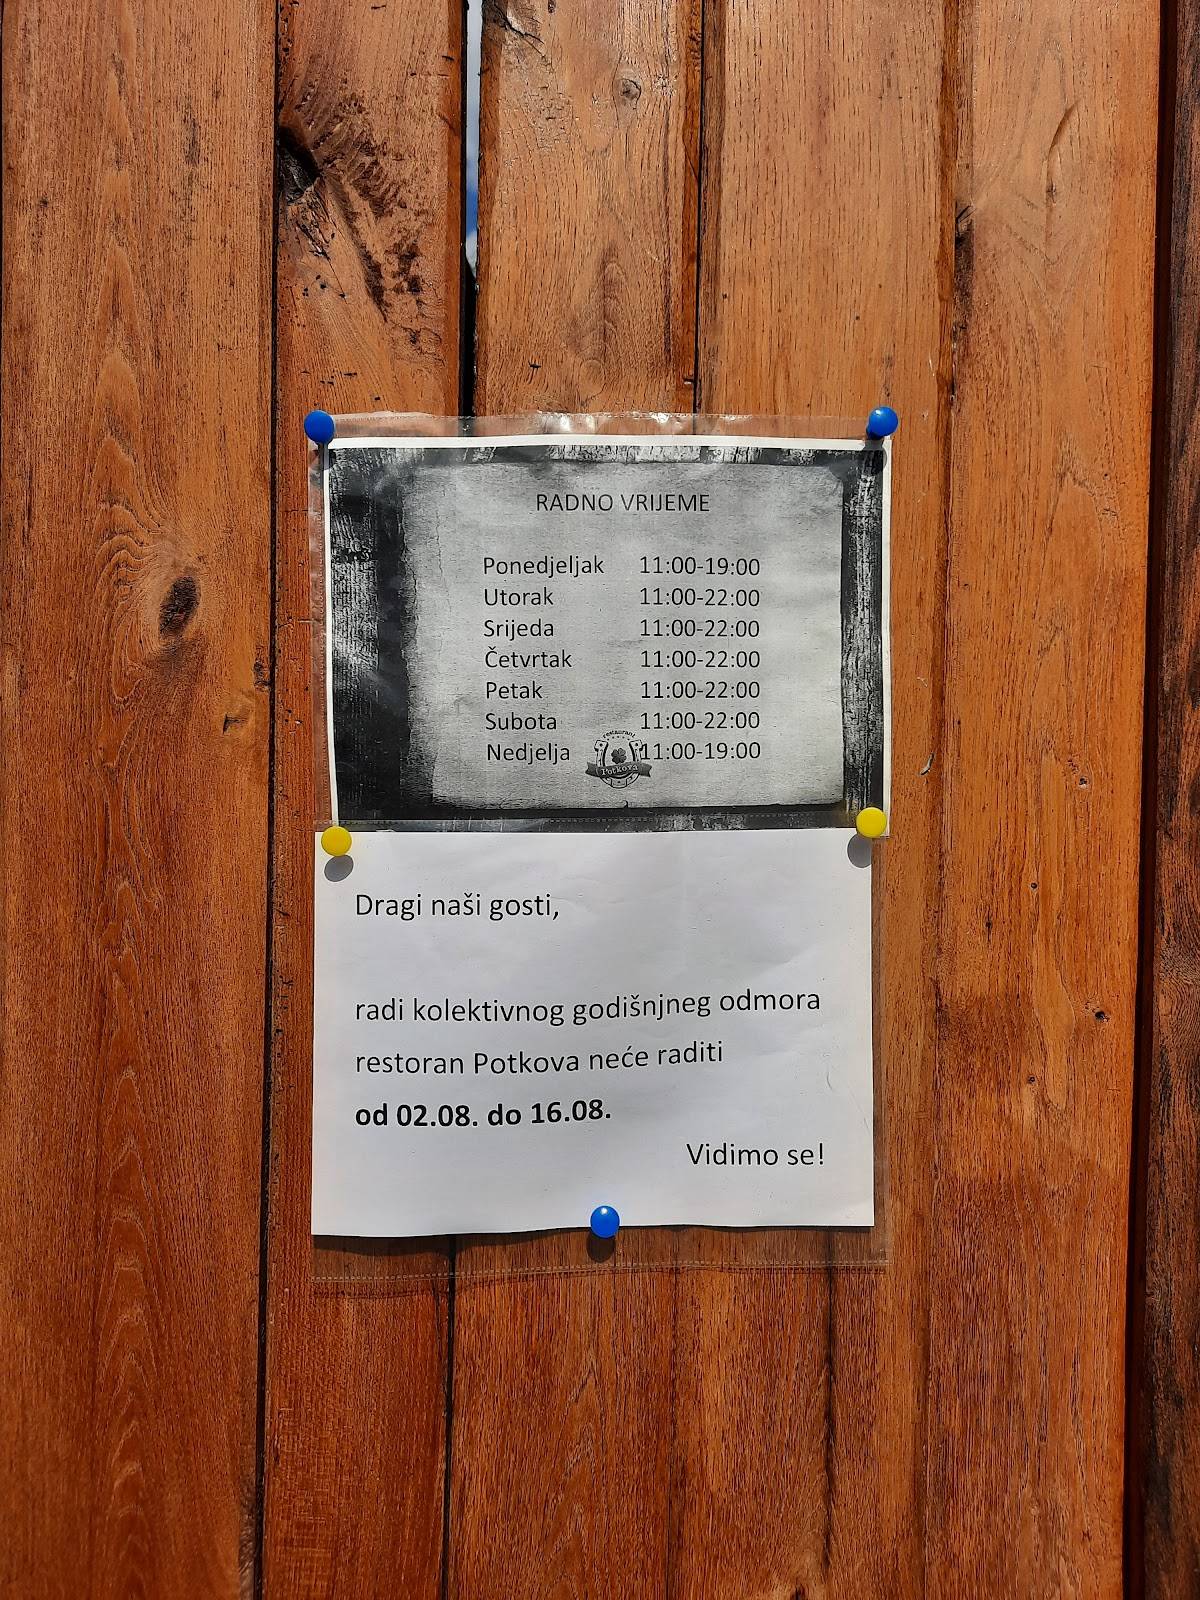 RADNO VRIJEME
Ponedjeljak 11:00-19:00
Utorak 11:00-22:00
Srijeda 11:00-22:00
Četvrtak 11:00-22:00
Petak 11:00-22:00
Subota 11:00-22:00
Nedjelja 11:00-19:00
restaurant
Potkova
Dragi naši gosti,
radi kolektivnog godišnjneg odmora
restoran Potkova neće raditi
od 02.08. do 16.08.
Vidimo se!